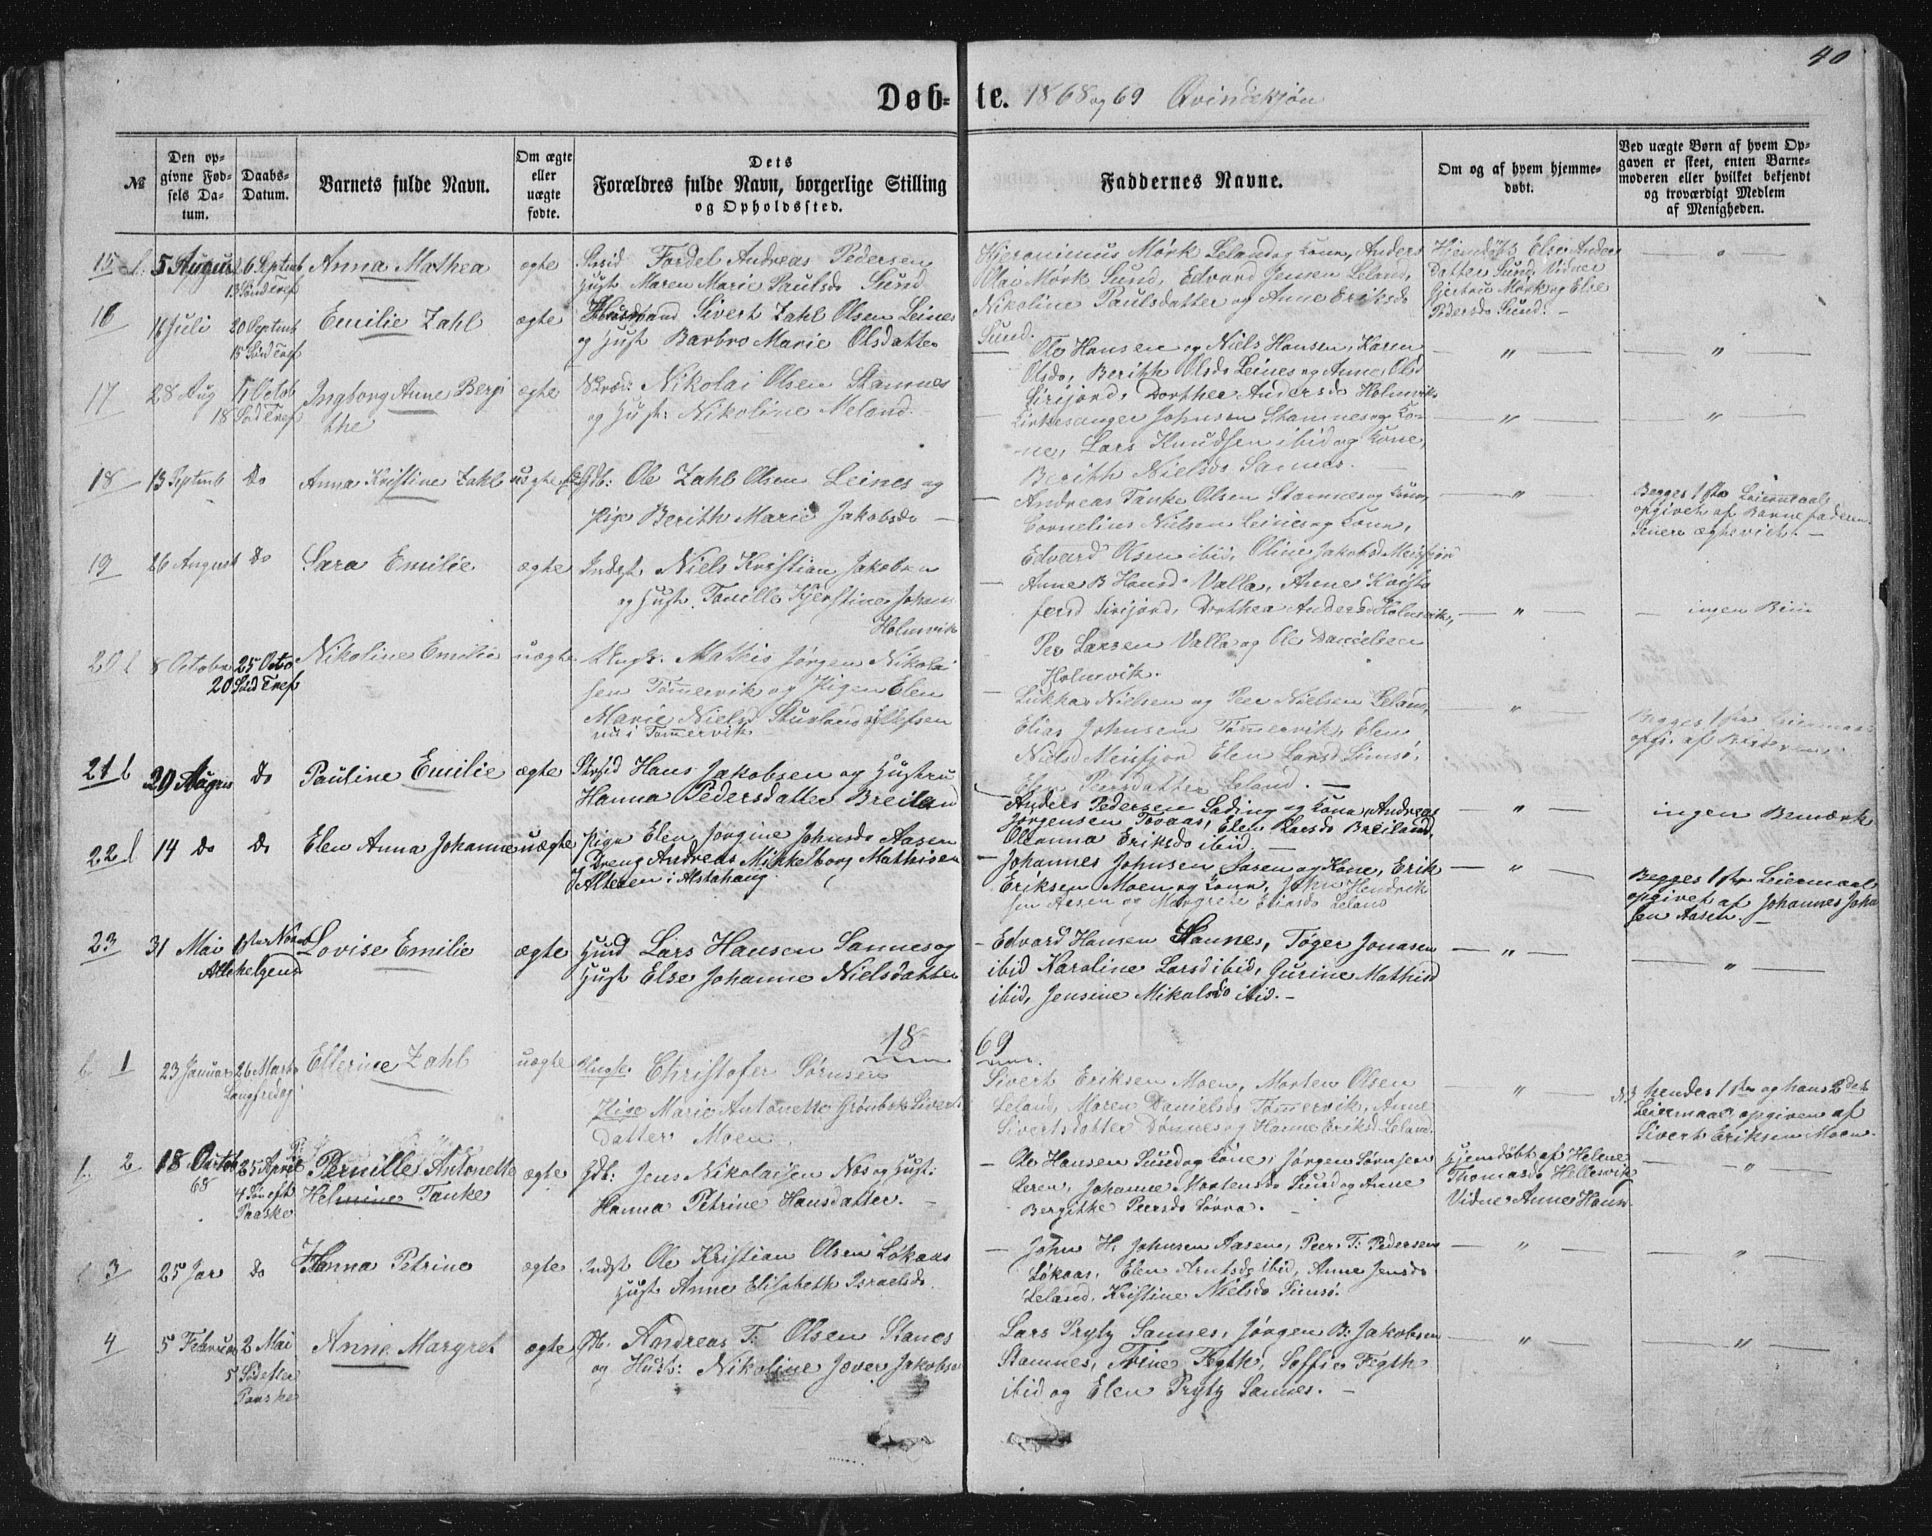 40
Døb-te. 1868 og 69 Qvindekjøn
№
Den op-
givne Fød-
sels Da-
tum.
Daabs-
Datum.
Barnets fulde Navn.
Om ægte
eller
uægte
fødte.
Dets
Forældres fulde Navn, borgerlige Stilling
og Opholdssted.
Faddernes Navne.
Om og af hvem hjemme-
døbt.
Ved uægte Børn af hvem Op-
gaven er skeet, enten Barne-
moderen eller hvilket bekjendt
og troværdigt Medlem
af Menigheden.
15 5 August 6 Septemb Anna Mathea ægte Fordel Andreas Pedersen
13 Sønd Tref Hust Maren Marie Paulsdo Sund
Hjeronimus Mørk Leland og Kone, Anders
Olai Mørk Sund, Edvard Jensen Leland,
Nikoline Paulsdatter og Anne Eriksdo
Sund.
Hjemdøbt Else Anders
Datter Sund. Vidner
Gjertru Mørk og Else
Pedersdo Sund.
16 16 Juli 20 Septemb Emilie Zahl ægte Husmand Sivert Zahl Olsen Leines
15 Sønd Tref og Hust Barbro Marie Olsdatter
Ole Hansen og Niels Hansen, Karen
Olsdo, Berith Olsdo Leines og Anne Olsd
Sirijord, Dorthea Andersdo Holmvik
17 28 Aug 11 Octob Ingborg Anne Bergi ægte Nikolai Olsen Stamnes
18 Sød Tref the og Hust: Nikoline Meland.
Kirkesanger Johnsen Stamnes og Ko-
ne, Lars Knudsen ibid og Kone,
Berith Nielsdo Sannes.
18 13 Septemb Do Anna Kristine Zahl uægte Ole Zahl Olsen Leines og
Pige Berith Marie Jakobsdo
Andreas Tanke Olsen Stamnes og Kone
Cornelius Nielsen Leines og Kone,
Edvard Olsen ibid, Oline Jakobsd Meisfjord
Begges 1ste Leiermaal
opgivet af Barnefaderen
19 26 August Do Sara Emilie ægte Indst. Niels Kristian Jakobsen
og Hust. Tonille Kjerstine Johans
Holmvik
Anne B Hansd Valla, Anne Kristo
fersd Sirijord, Dorthea Andersd Holmvik,
Per Larsen Valla og Ole Danielsen
Holmvik.
ingen Bem
20 8 Octobr 25 Octo Nikoline Emilie uægte Ungk. Mathis Jørgen Nikolai
20 Sød Tref sen Tømmervik og Pigen Elen
Marie Nielsd
nu i Tømmervik
Lukkas Nilsen og Peer Nielsen Leland,
Elias Johnsen Tømmervik, Elen
Nielsd Meisfjor Elen Larsd Simsø,
Else Peersdatter Leland.
Begges 1ste Leiermaal
opgi. af
21 29 Augus do Pauline Emilie ægte Hans Jakobsen og Hustru
Hanna Pedersdatter Breiland
Anders Pedersen Lading og Kone, Andreas
Jørgensen Tovaas, Elen Larsdo Breiland,
Oleanna Eriksdo ibid.
ingen Bemærk
22 14 do do Elen Anna Johanne uægte Pige Elen Jørgine Johnsdo Aasen
og Dreng Andreas Mikkelborg Mathisen
Alteren i Alstahaug.
Johannes Johnsen Aasen og Kone, Erik
Eriksen Moen og Kone, John Hendrik
sen Aasen og Margrete Eliasdo Leland
Begges 1ste Leiermaal
opgivet af Johannes John
sen Aasen.
23 31 Mai 1ster Novb Lovise Emilie ægte Husd Lars Hansen Sannes og
Allehelgend Hust Else Johanne Nielsdatter
Edvard Hansen Sannes, Tøger Jonasen
ibid Karoline Larsd ibid, Jurine Mathisd
ibid, Jensine Mikalsdo ibid.
18 69
1 23 Januar 26 Marts Ellerine Zahl uægte Ungk. Christofer Sørnsen
Langfredag Pige Marie Antonette Grønbek Siverts
Datter Moen
Sivert Eriksen Moen, Morten Olsen
Leland, Maren Danielsdo Tømmervik, Anne
Sivertsdatter Dønnes og Hanne Eriksd Leland.
hendes 1ste og hans 2det
Leiermaal opgiven af
Sivert Eriksen Moen.
2 18 Octob 25 April Pernille Antonette ægte Gdb: Jens Nikolaisen Nes og Hust:
68 4 Søn eft Helmine Tanke Hanna Petrine Hansdatter.
Paaske
Ole Hansen Sund og Kone, Jørgen Sørnsen
Leren, Johanne Mortensdo Sund og Anne
Bergitte Peersdo Sørra.
Hjemdøbt af Helene
Thomasdo Hellesvik
Vidne Anne Hans
3 25 Jar Do Hanna Petrine ægte Indst Ole Kristian Olsen Løkaas
Hust Anne Elisabeth Israelsdo.
John H. Johnsen Aasen, Peer T: Pedersen
Løkaas, Elen Arntsdo ibid, Anne Jensdo
Leland, Kristine Nielsdo Simsø.
4 5 Februar 2 Mai Anne Margret ægte Gb. Andreas T: Olsen Stanes
5 Sød efter og Hust: Nikoline Jæver Jakobsd
Paaske
Lars Prytz Sannes, Jørgen B: Jakobsen
Stamnes, Trine Figth, Soffie Figth
ibid og Elen Prytz Sannes.